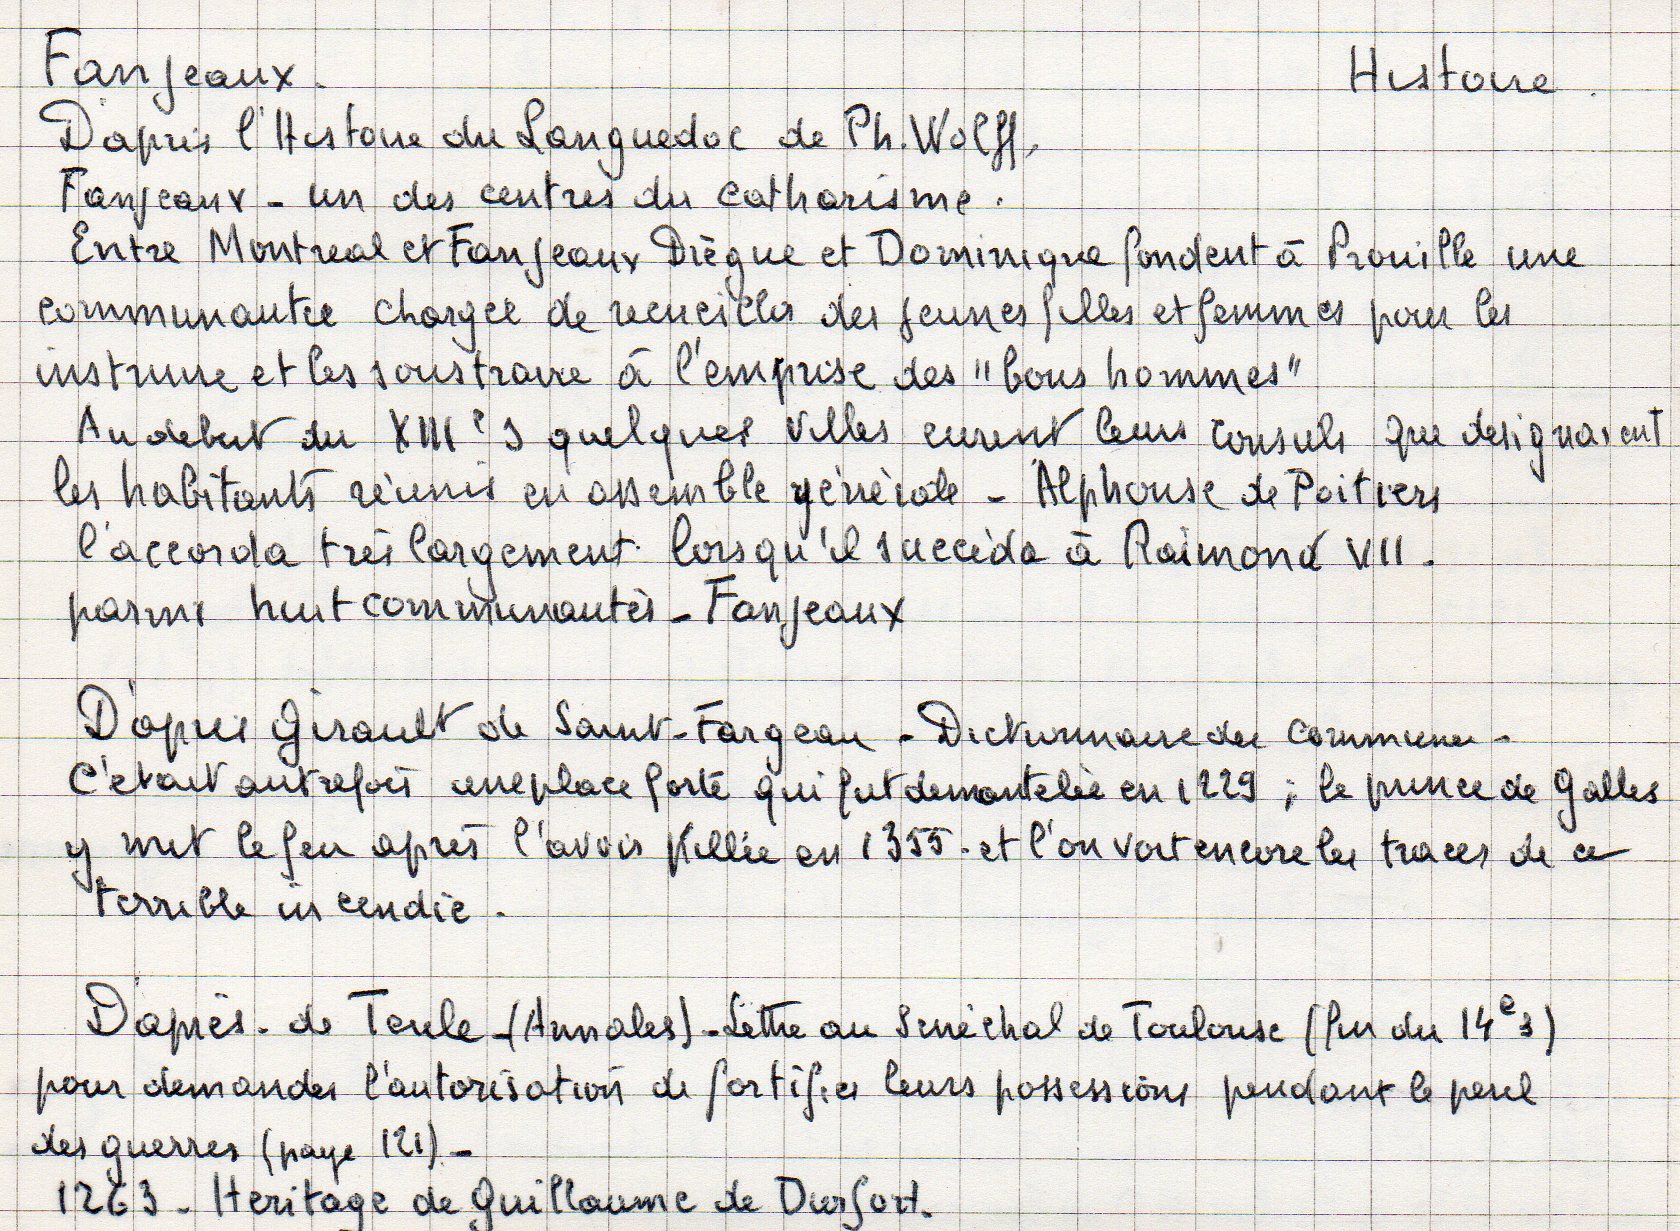 Fanjeaux. Histoire.
D'après l'Histoire du Languedoc de Ph. Wolff,
Fanjeaux - un des centres du catharisme.
Entre Montreal et Fanjeaux Diègue et Dominique fondent à Prouille une
communautée chargée de recueillir des jeunes filles et femmes pour les
instruire et les soustraire à l'emprise des "bons hommes"
Au debut du XIIIe s quelques villes eurent leurs consuls que designaient
les habitants réunis en assemble générale - Alphonse de Poitiers
l'accorda très largement lorsqu'il succéda à Raimond VII.
parmi huit communautés - Fanjeaux
D'après Girault de Saint-Fargeau - Dictionnaire des communes -
C'était autrefois une place forte qui fut demantelée en 1229 ; le prince de Galles
y met le feu après l'avoir pillée en 1355. et l'on voit encore les traces de ce
terrible incendie.
D'après - de Teule - (Annales) - Lettre au Sénéchal de Toulouse (fin du 14e s)
pour demander l'autorisation de fortifier leurs possessions pendant le peril
des guerres (page 121) -
1263 - Heritage de Guillaume de Durfort.